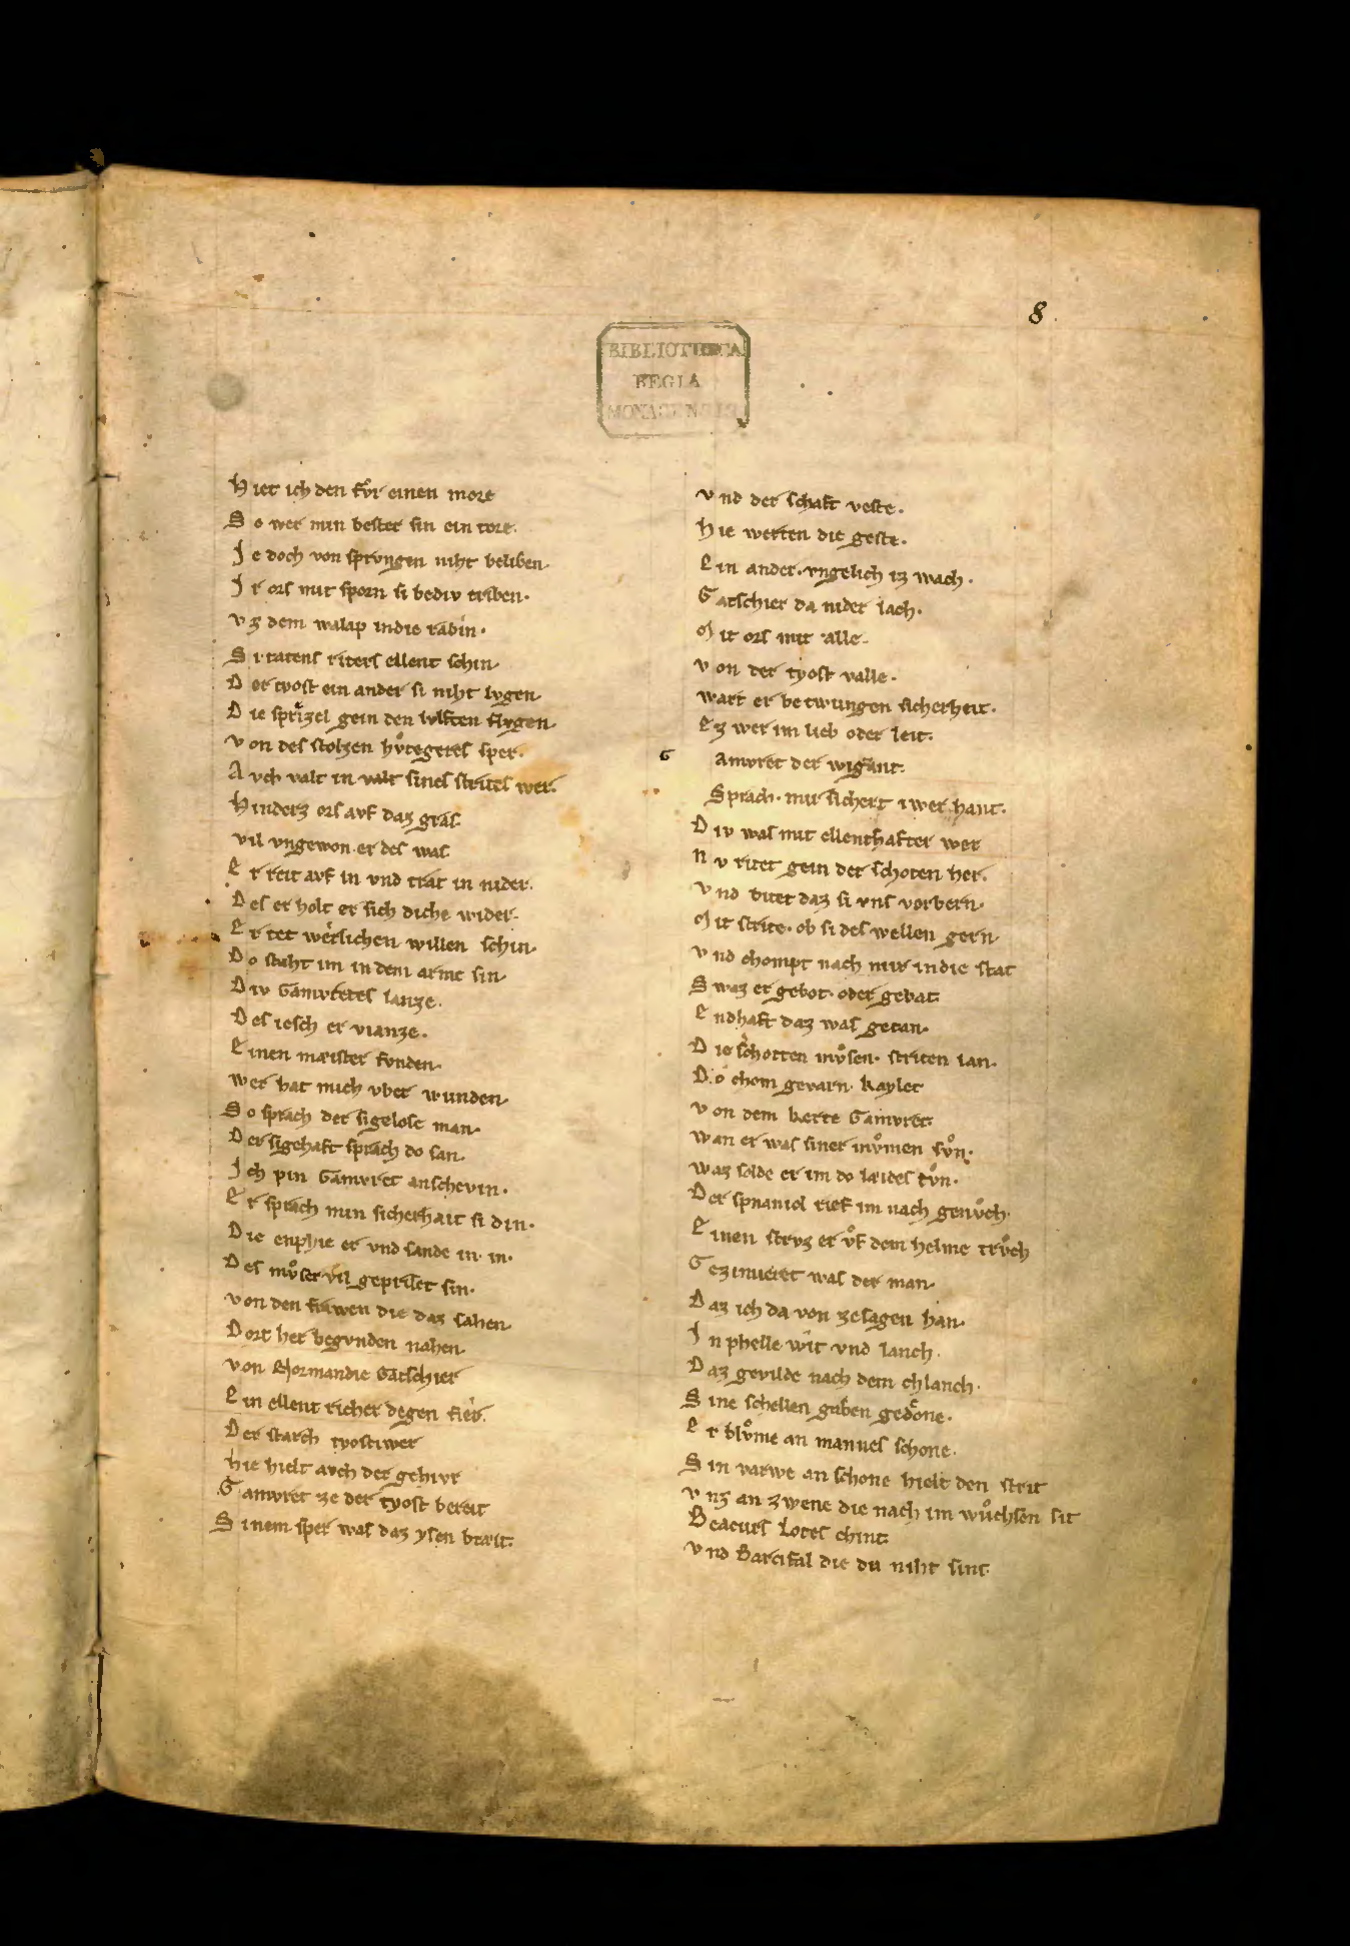 8
BIBLIOTHECA
REGIA
MONACENSIS
Hiet ich den fvͦr einen more
So wer min bester sin ein tore.
Je doch von sprvngen niht beliben.
Jr ors mit sporn si bediv triben.
vz dem walap indie rabin.
Si tatens riters ellent schin.
Der tyost ein ander si niht lvgen.
Die sprizel gein den lvften flvgen.
von des stolzen hvͦtegeres sper.
Avch valt in valt sines strites wer.
Hinderz ors avf daz gras.
vil vngewon er des was.
Er reit avf in vnd trat in nider.
Des er holt er sich diche wider.
Er tet werlichen willen schin.
Do staht im in dem arme sin
Div Gamvretes lanze.
Des iesch er vianze.
Einen mæister fvnden.
wer hat mich vber wunden.
So sprach der sigelose man.
Der sigehaft sprach do san.
Ich pin Gamvret anschevin.
Er sprach min sicherhait si din.
Die enphie er vnd sande in in.
Des mvͦser vil gepriset sin.
von den frawen die daz sahen.
Dort her begvnden nahen.
von Normandie Gatschier
Ein ellent richer degen fier.
Der starch tyostiwer
hie hielt avch der gehivr
Gamvret ze der tyost bereit
Sinem sper was daz ysen bræit.
vnd der schaft veste.
Hie werten die geste.
Ein ander. vngelich iz wach.
Gatschier da nider lach.
Mit ors mit alle.
von der tyost valle.
wart er betwungen sicherheit.
Ez wer im lieb oder leit.
G amvret der wigant.
Sprach. mir sichert iwer hant.
Div was mit ellenthafter wer
Nv ritet gein der schoten her.
vnd bitet daz si vns vorbern.
Mit strite. ob si des wellen gern.
vnd chompt nach mir indie stat
Swaz er gebot. oder gebat.
Endhaft daz was getan.
Die schotten mvͦsen. striten lan.
Do chom gevarn. kaylet
von dem kerte Gamvret.
wan er was siner mvͦmen svͦn.
waz solde er im do læides tvͦn.
Der spnaniol rief im nach genvͦch.
Einen strvz er vͦf dem helme trvͦch
Gezimieret was der man.
Daz ich da von ze sagen han.
In phelle wit vnd lanch.
Daz gevilde nach dem chlanch.
Sine schellen gaben gedone.
Er blvͦme an mannes schone.
Sin varwe an schone hielt den strit
vnz an zwene die nach im wuͦchsen sit
Beacurs Lotes chint.
vnd Barcifal die du niht sint.